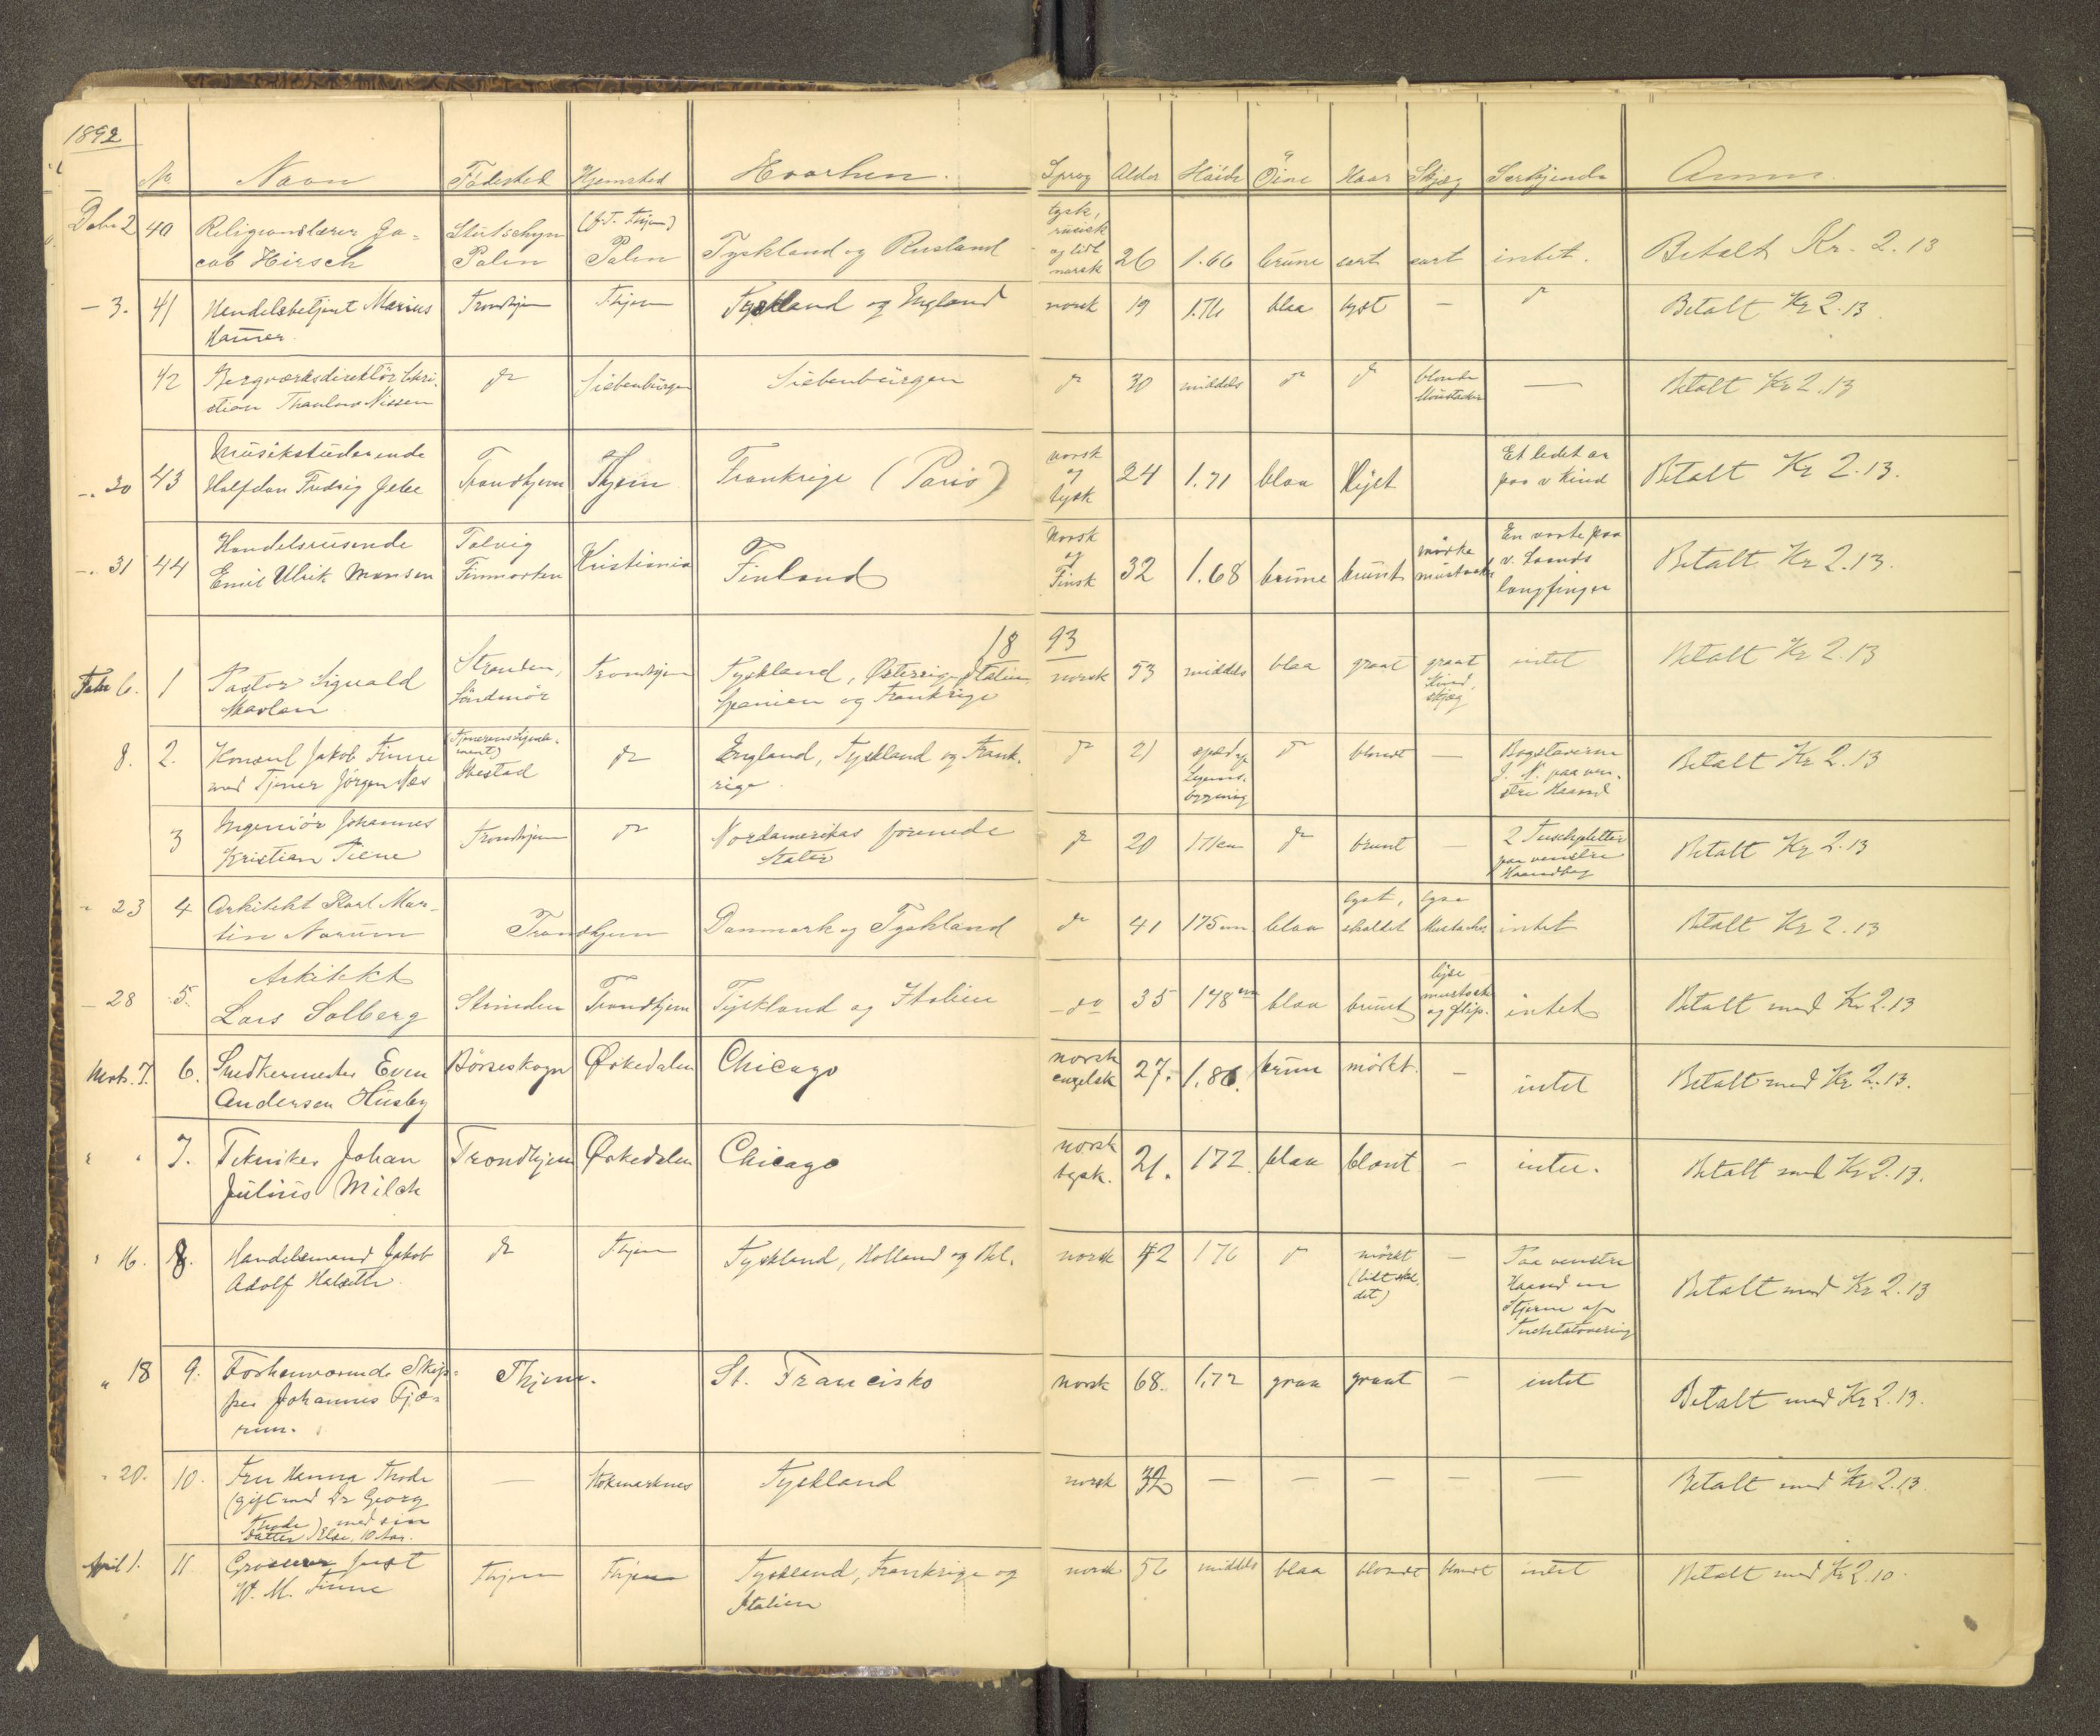 1892
No Navn Fødested Hjemsted Hvorhen. Sprog Alder Höide Öine Haar Skjæg Særkjende Anm.
Debr 2 40 Religionslærer Ja=
cob Hirsch
Polen
(f. T. Thjem)
Polen
Tyskland og Rusland
tysk,
rusisk
og lidt
norsk
26 1.66 brune sort sort intet. Betalt Kr. 2.13
- 3. 41 Handelsbetjent Marius
Hamer
Trondhjem Thjem Tyskland og England norsk 19 1.76 blaa lyst — do Betalt Kr 2.13
42 Bergværksdirektör Chri-
stian Thaulow Nissen
do Siebenbürgen Siebenbürgen do 30 middels do do blonde
Moustacher
— Betalt Kr 2.13
-. 30 43 Musikstuderende
Halfdan Fredrig Jebe
Trondhjem Thjem Frankrige (Paris)
norsk
og
tysk
24 1.71 blaa lyst
Et lidet ar
paa v Kind
Betalt Kr 2.13.
-. 31 44 Handelsreisende
Emil Ulrik Monsen
Talvig
Finmarken
Kristiania Finland
Norsk
og
Finsk
32 1.68 brune brunt
mörke
mustacher
En vorte paa
v. Haands
langfinger
Betalt Kr 2.13.
18 93
Febr 6. 1 Pastor Sigvald
Skavlan
Stranden,
Söndmör
Trondhjem Tyskland, Østerrige, Italien,
Spanien og Frankrige
norsk 53 middels blaa graat graat
Kind,
skjæg
intet Betalt Kr 2.13
8. 2. Konsul Jakob Finne
med Tjener Jörgen Næs
Ibestad
do England, Tyskland og Frank-
rige
do 21 spædt
Legems-
bygning
do blondt — Bogstaverne
J. N. paa ven-
stre Haand
Betalt Kr 2.13
3 Ingeniör Johannes
Kristian Piene
Trondhjem do Nordamerikas forenede
Stater
do 20 171cm do brunt — 2 Tuschpletter
paa venstre
Haandbag
Betalt Kr 2.13
- 23 4 Arkitekt Karl Mar-
tin Norum
Trondhjem Danmark og Tyskland do 41 175 cm blaa lyst,
skaldet
lyse
Mustacher
intet Betalt Kr 2.13
- 28 5. Arkitekt
Lars Solberg
Strinden Trondhjem Tyskland og Italien do 35 178 cm blaa brunt
lyse
mustache
og Flip.
intet Betalt med Kr 2.13
Marts. 7. 6. Snedkermester Even
Andersen Husby
Börseskogn Ørkedalen Chicago
norsk
engelsk
27. 1.86. brun mörkt. — intet Betalt med Kr 2.13.
" " 7. Tekniker Johan
Julius Milch
Trondhjem Ørkedalen Chicago
norsk
tysk.
21. 172 blaa blont — intet. Betalt med Kr 2.13.
" 16. 8. Handelsmand Jakob
Adolf Halseth
do Thjem Tyskland, Holland og Bel.
norsk 42 176 do mörkt
(lidt skal-
det)
— Paa venstre
Haand en
Stjerne af
Tuchtatovering
Betalt med Kr 2.13
" 18 9. Forhenværende Skip=
per Johannes Fjæ=
rum.
Thjem. St. Francisko norsk 68. 1.72 graa graat — intet Betalt med Kr 2.13.
" 20. 10. Fru Hanna Thode
(gift med Dr Georg
Thode) med sin
Datter Else, 10 Aar.
— Stokmarknes Tyskland norsk 32 — — — — — Betalt med Kr 2.13
April 1. 11 Grosserer Just
W. M. Finne
Thjem Thjem Tyskland, Frankrige og
Italien
norsk 56 middels blaa blondt blondt intet Betalt med Kr 2.10.